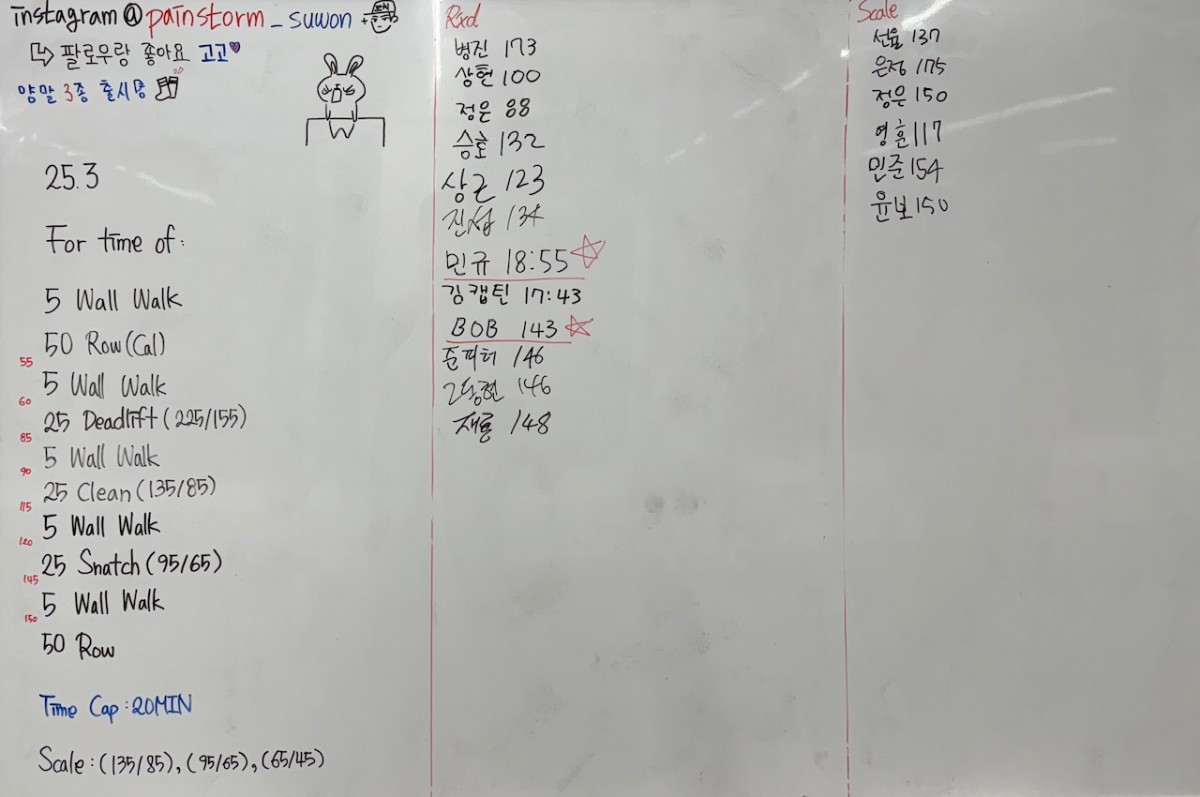 instagram @painstorm_suwon +
팔로우랑 좋아요 고고
양말 3종 출시중
25.3
For time of:
5 Wall Walk
50 Row(Cal)
55
5 Wall Walk
60
25 Deadlift(225/155)
85
5 Wall Walk
90
25 Clean(135/85)
115
5 Wall Walk
120
25 Snatch(95/65)
145
5 Wall Walk
150
50 Row
Time Cap:20MIN
Scale:(135/85),(95/65),(65/45)
Rxd
병진 173
상현 100
정은 88
승호 132
상근 123
진섭 134
민규 18:55
김캡틴 17:43
BOB 143
준피터 146
그동현 146
재룡 148
Scale
선율 137
은정 175
정은 150
영훈 117
민준 154
윤보 150